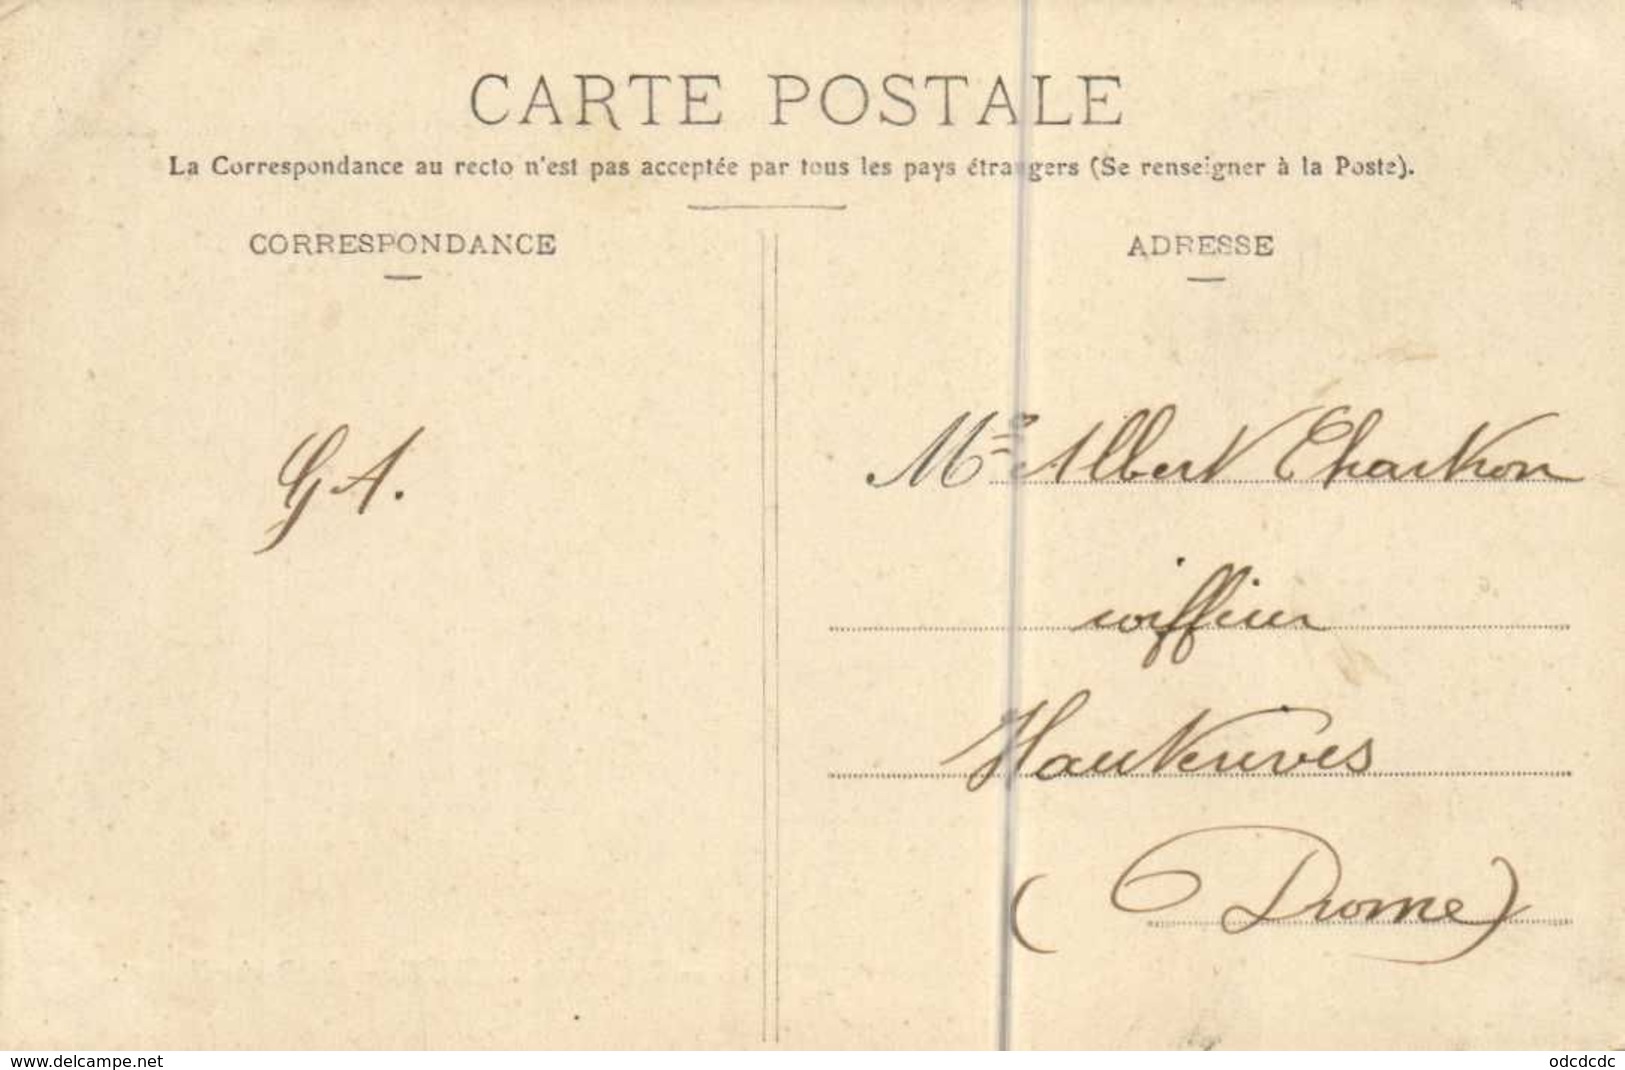 CARTE POSTALE
La Correspondance au recto n'est pas acceptée par tous les pays étrangers (Se renseigner à la Poste).
CORRESPONDANCE
ADRESSE
G A.
Mr Albert Charkon
coiffeur
Hauterives
(Drome)
www.delcampe.net
odcdcdc